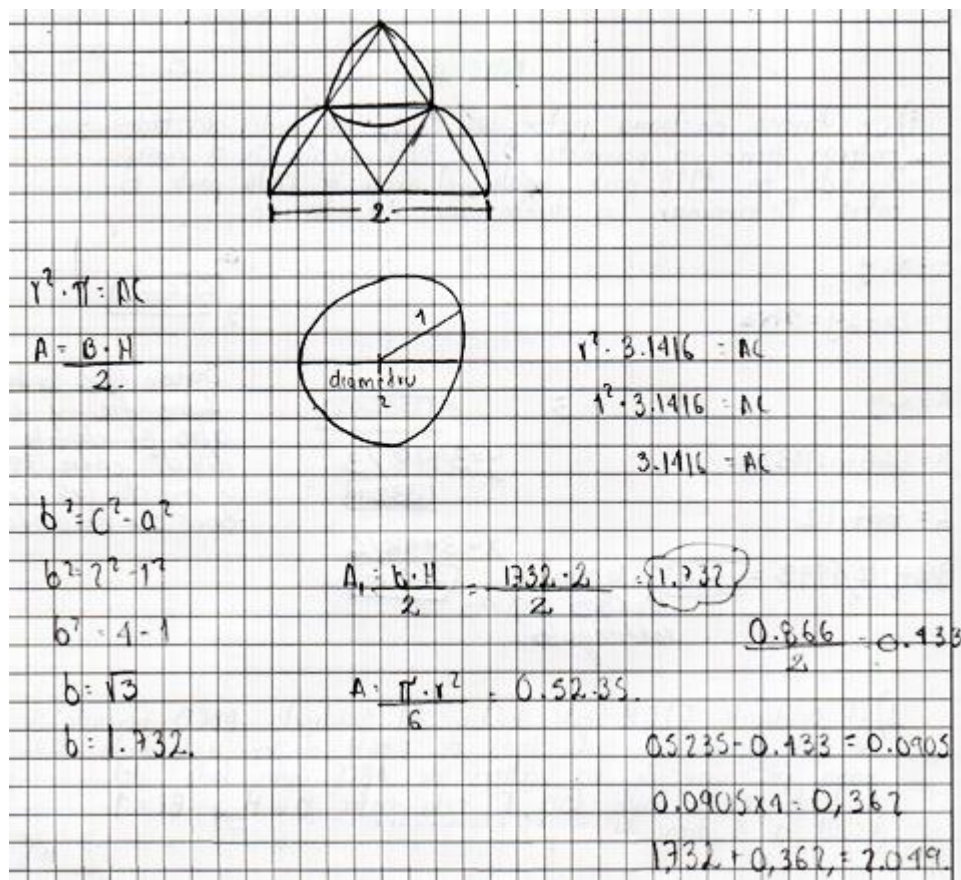 2
r² · π = AC
A = B · H
2.
1
diametro
2
r² · 3.1416 = AC
1² · 3.1416 = AC
3.1416 = AC
b² = c² - a²
b² = 2² - 1²
b² = 4 - 1
b = √3
b = 1.732.
A₁ = b · H / 2 = 1732 · 2 / 2 = 1.732
0.866 / 2 = 0.433
A = π · r² / 6 = 0.52.35.
0.5235 - 0.433 = 0.0905
0.0905 x 4 = 0,362
1.732 + 0,362, = 2.049.